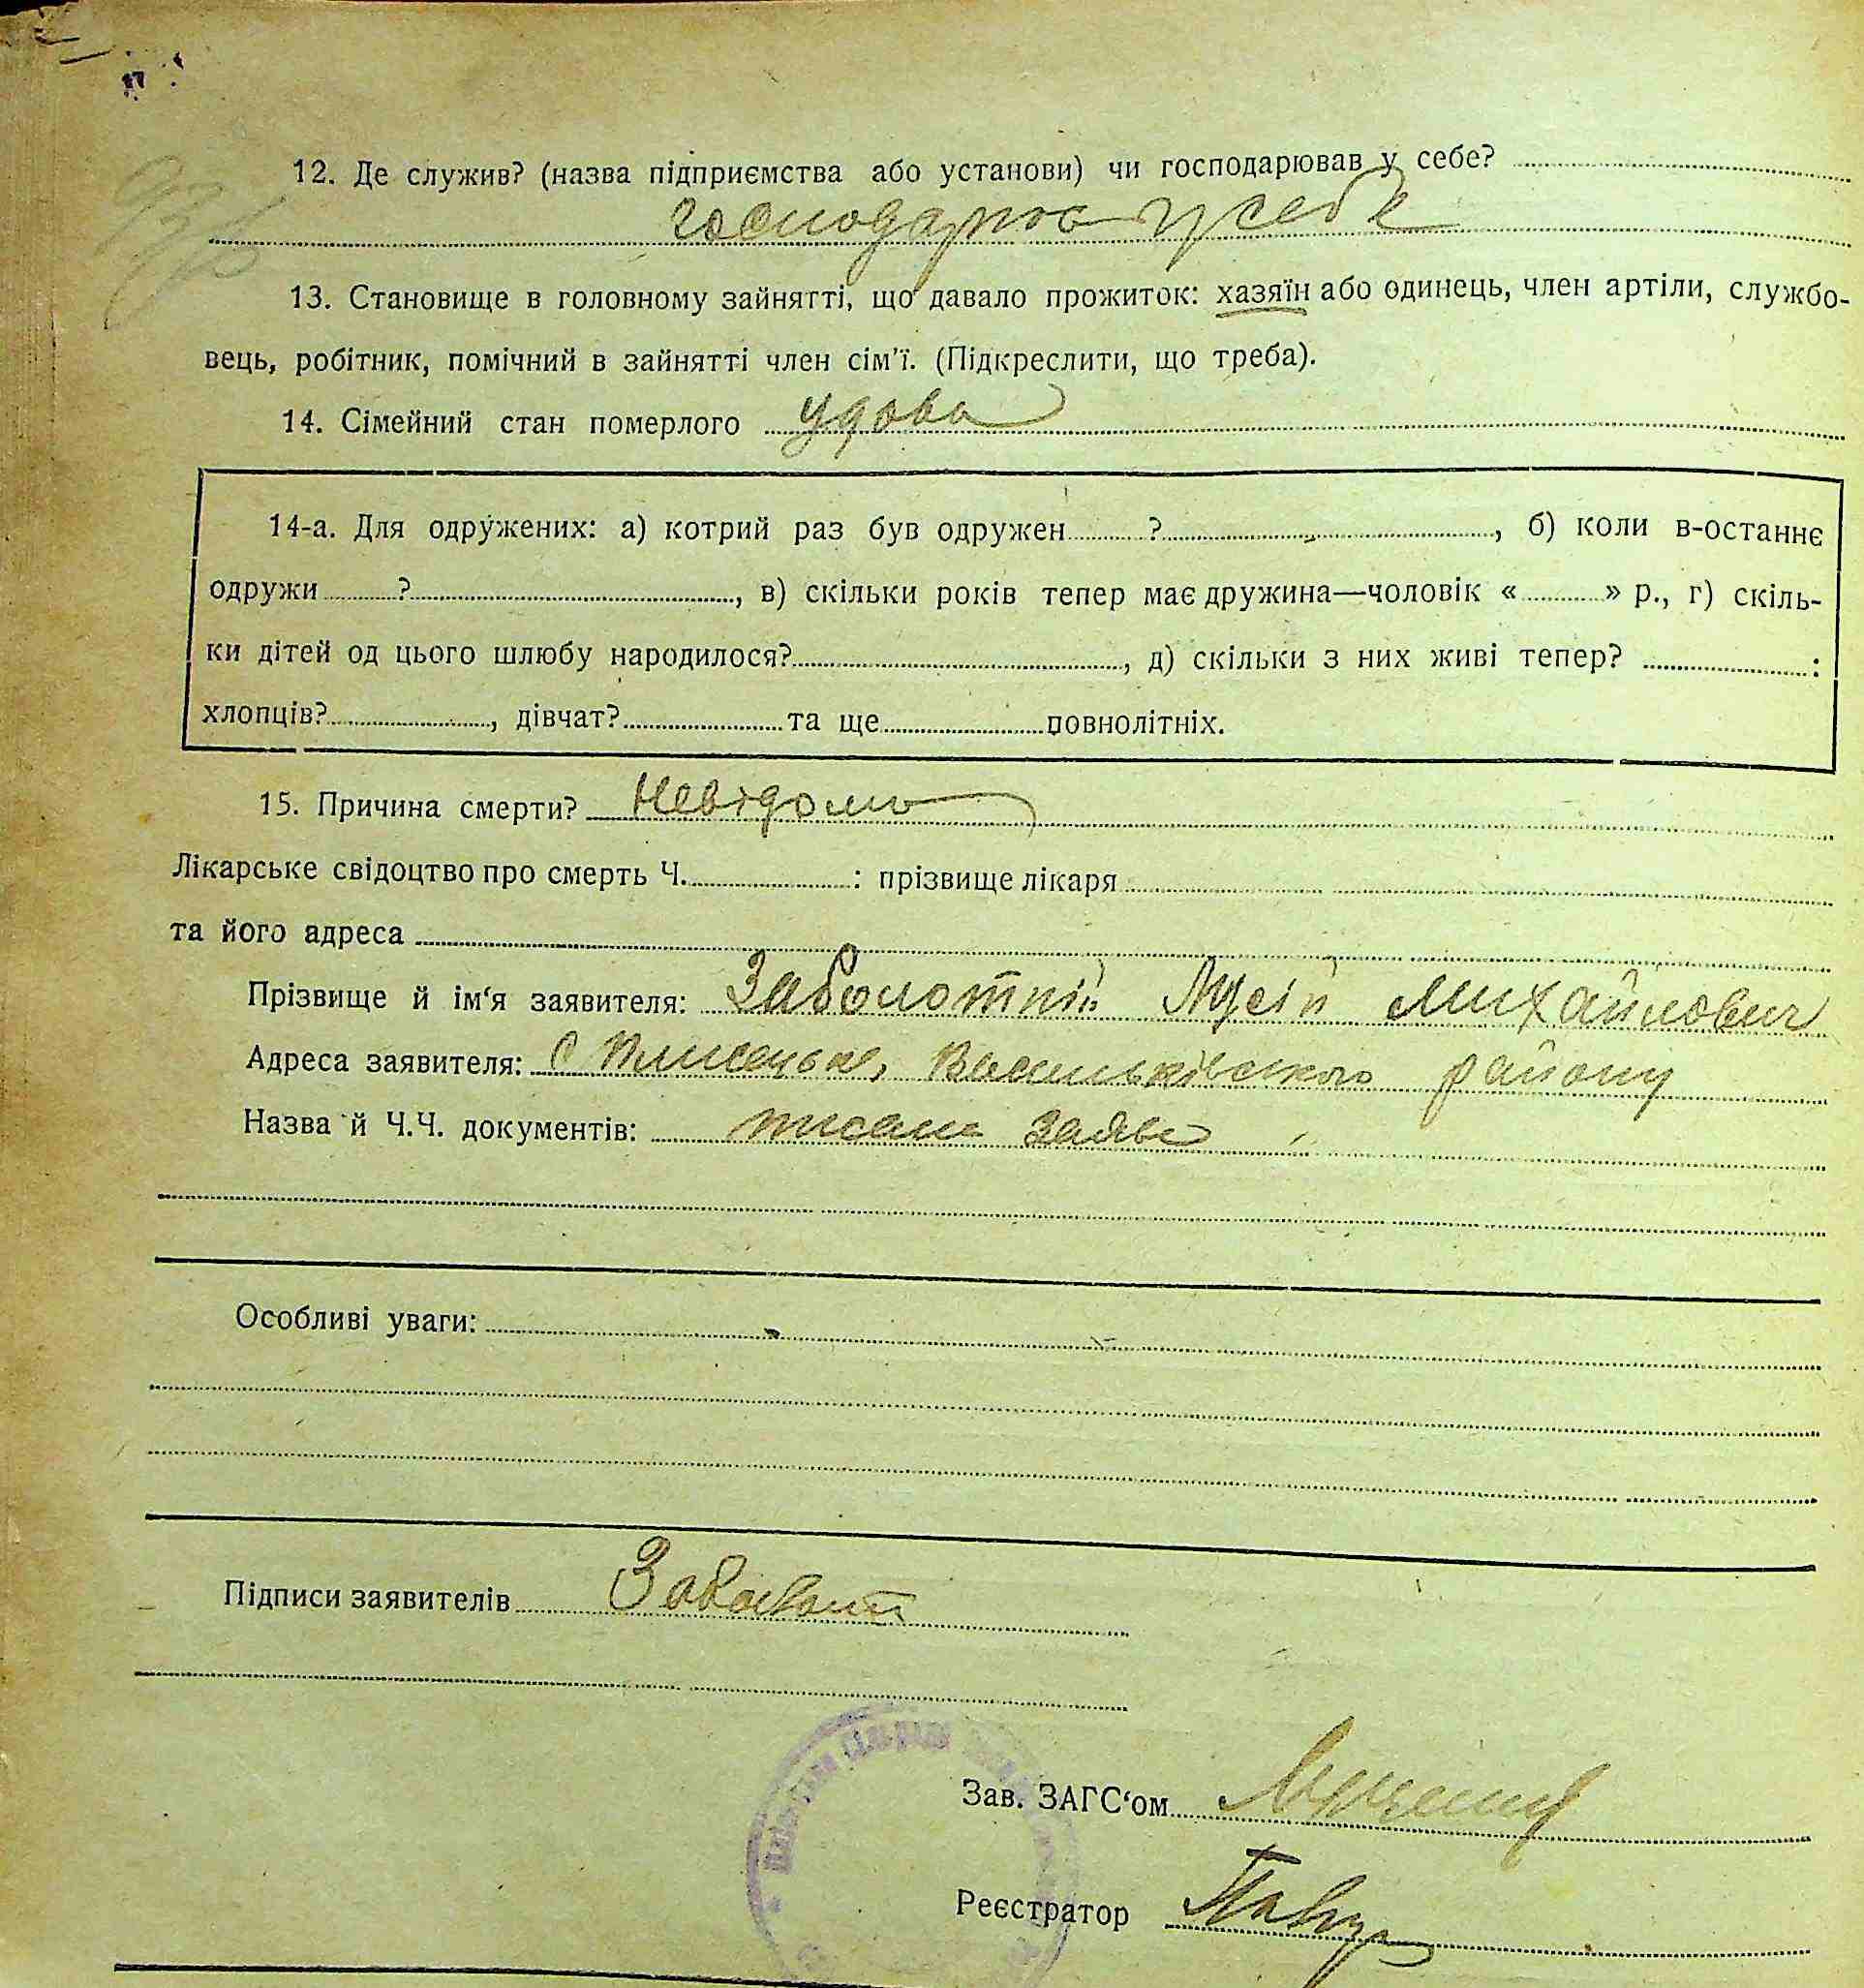 12. Де служив? (назва підприємства або установи) чи господарював у себе?
господарюв у себе
13. Становище в головному зайнятті, що давало прожиток: хазяїн або одинець, член артіли, службо-
вець, робітник, помічний в зайнятті член сім'ї. (Підкреслити, що треба).
14. Сімейний стан померлого удова
14-а. Для одружених: а) котрий раз був одружен ?, б) коли в-останнє
одружи ?, в) скільки років тепер має дружина—чоловік « » р., г) скіль-
ки дітей од цього шлюбу народилося?, д) скільки з них живі тепер? :
хлопців?, дівчат? та ще повнолітніх.
15. Причина смерти? Невідома
Лікарське свідоцтво про смерть Ч. : прізвище лікаря
та його адреса
Прізвище й ім'я заявителя: Заболотній Мусій Михайлович
Адреса заявителя: С Плисецьке, Васильківського району
Назва й Ч.Ч. документів: писана заява
Особливі уваги:
Підписи заявителів Заболотн
Зав. ЗАГС'ом
Реєстратор